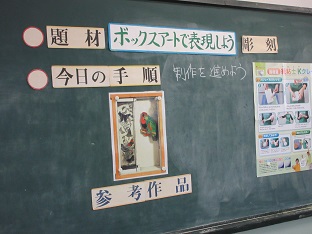 題材 ボックスアートで表現しよう 彫刻
今日の手順 制作を進めよう
参考作品